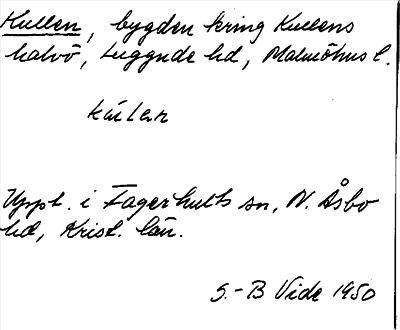 Kullen, bygden kring Kullens
halvö, Luggude hd, Malmöhus l.
kúlan
Uppt. i Fagerhults sn, N. Åsbo
hd, Krist. län.
S.-B Vide 1950